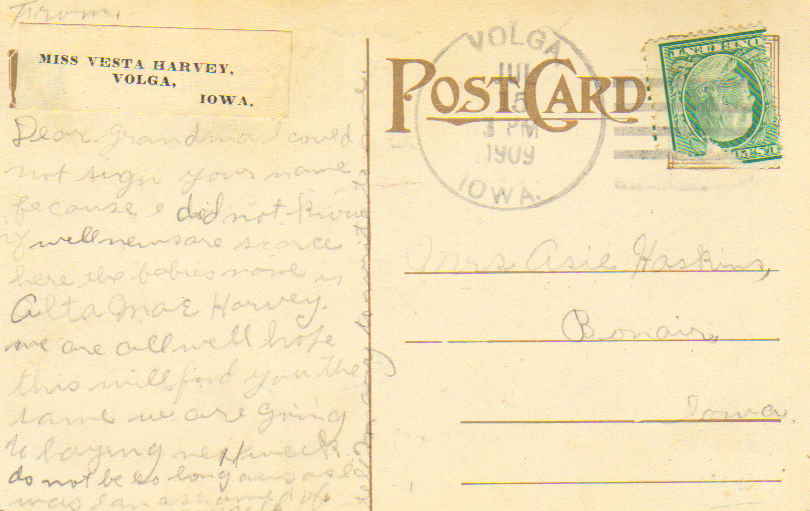 From.
MISS VESTA HARVEY,
VOLGA,
IOWA.
Dear grandma I could
not sign your name
because i did not know
if well news are scarce
here the babies name is
Alta Mae Harvey.
we are all well hope
this will find you the
same we are going
to haying next week.
do not be so long ans as I
was I am ashamed of
POST CARD
VOLGA
JUL
5
3 PM
1909
IOWA.
Mrs Asie Haskins,
Bonair,
Iowa.